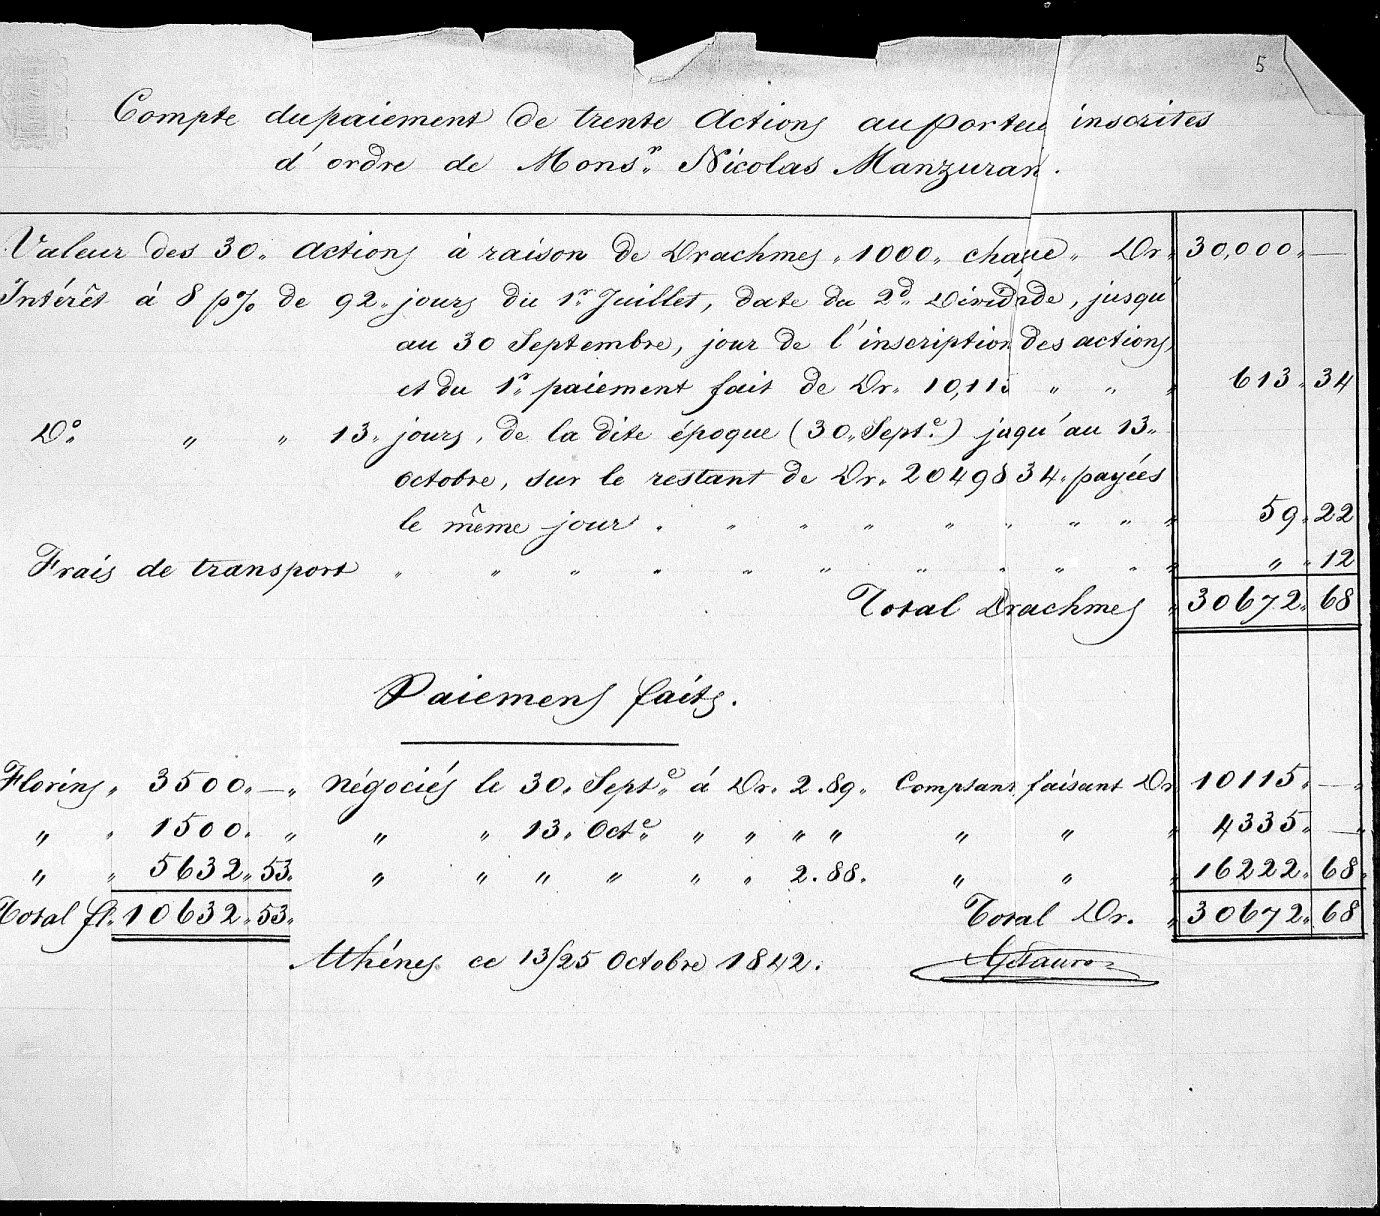 5
Compte du paiement de trente Actions au porteu inscrites
d'ordre de Mons.r Nicolas Manzuran.
Valeur des 30„ Actions à raison de Drachmes „ 1000„ chaque „ Dr„ 30,000„ —
Intérêt à 8 p% de 92„ jours du 1.r Juillet, date du 2.d Dividnde, jusqu'
au 30 Septembre, jour de l'inscription des actions,
et du 1.r paiement fait de Dr„ 10,115 „ „ „ 613„34
D.o „ „ 13„ jours, de la dite époque (30„ Sept.e) juqu'au 13„
octobre, sur le restant de Dr„ 20498 34„ payées
le même jour „ „ „ „ „ „ „ „ „ 59„22
Frais de transport „ „ „ „ „ „ „ „ „ „ „ „ „12
Total Drachmes „ 30672„68
Paiemens faits.
Florins „ 3500„—„ négociés le 30„ Sept.e à Dr. 2.89„ Comptant faisant Dr 10115„ —„
„ „ 1500„ „ „ „ 13„ Oct.e „ „ „ „ „ „ „ 4335„ —„
„ „ 5632„53„ „ „ „ „ „ „ 2.88. „ „ „ 16222„68„
Total fl. 10632„53„ Total Dr. „ 30672„68
Athénes ce 13/25 Octobre 1842.